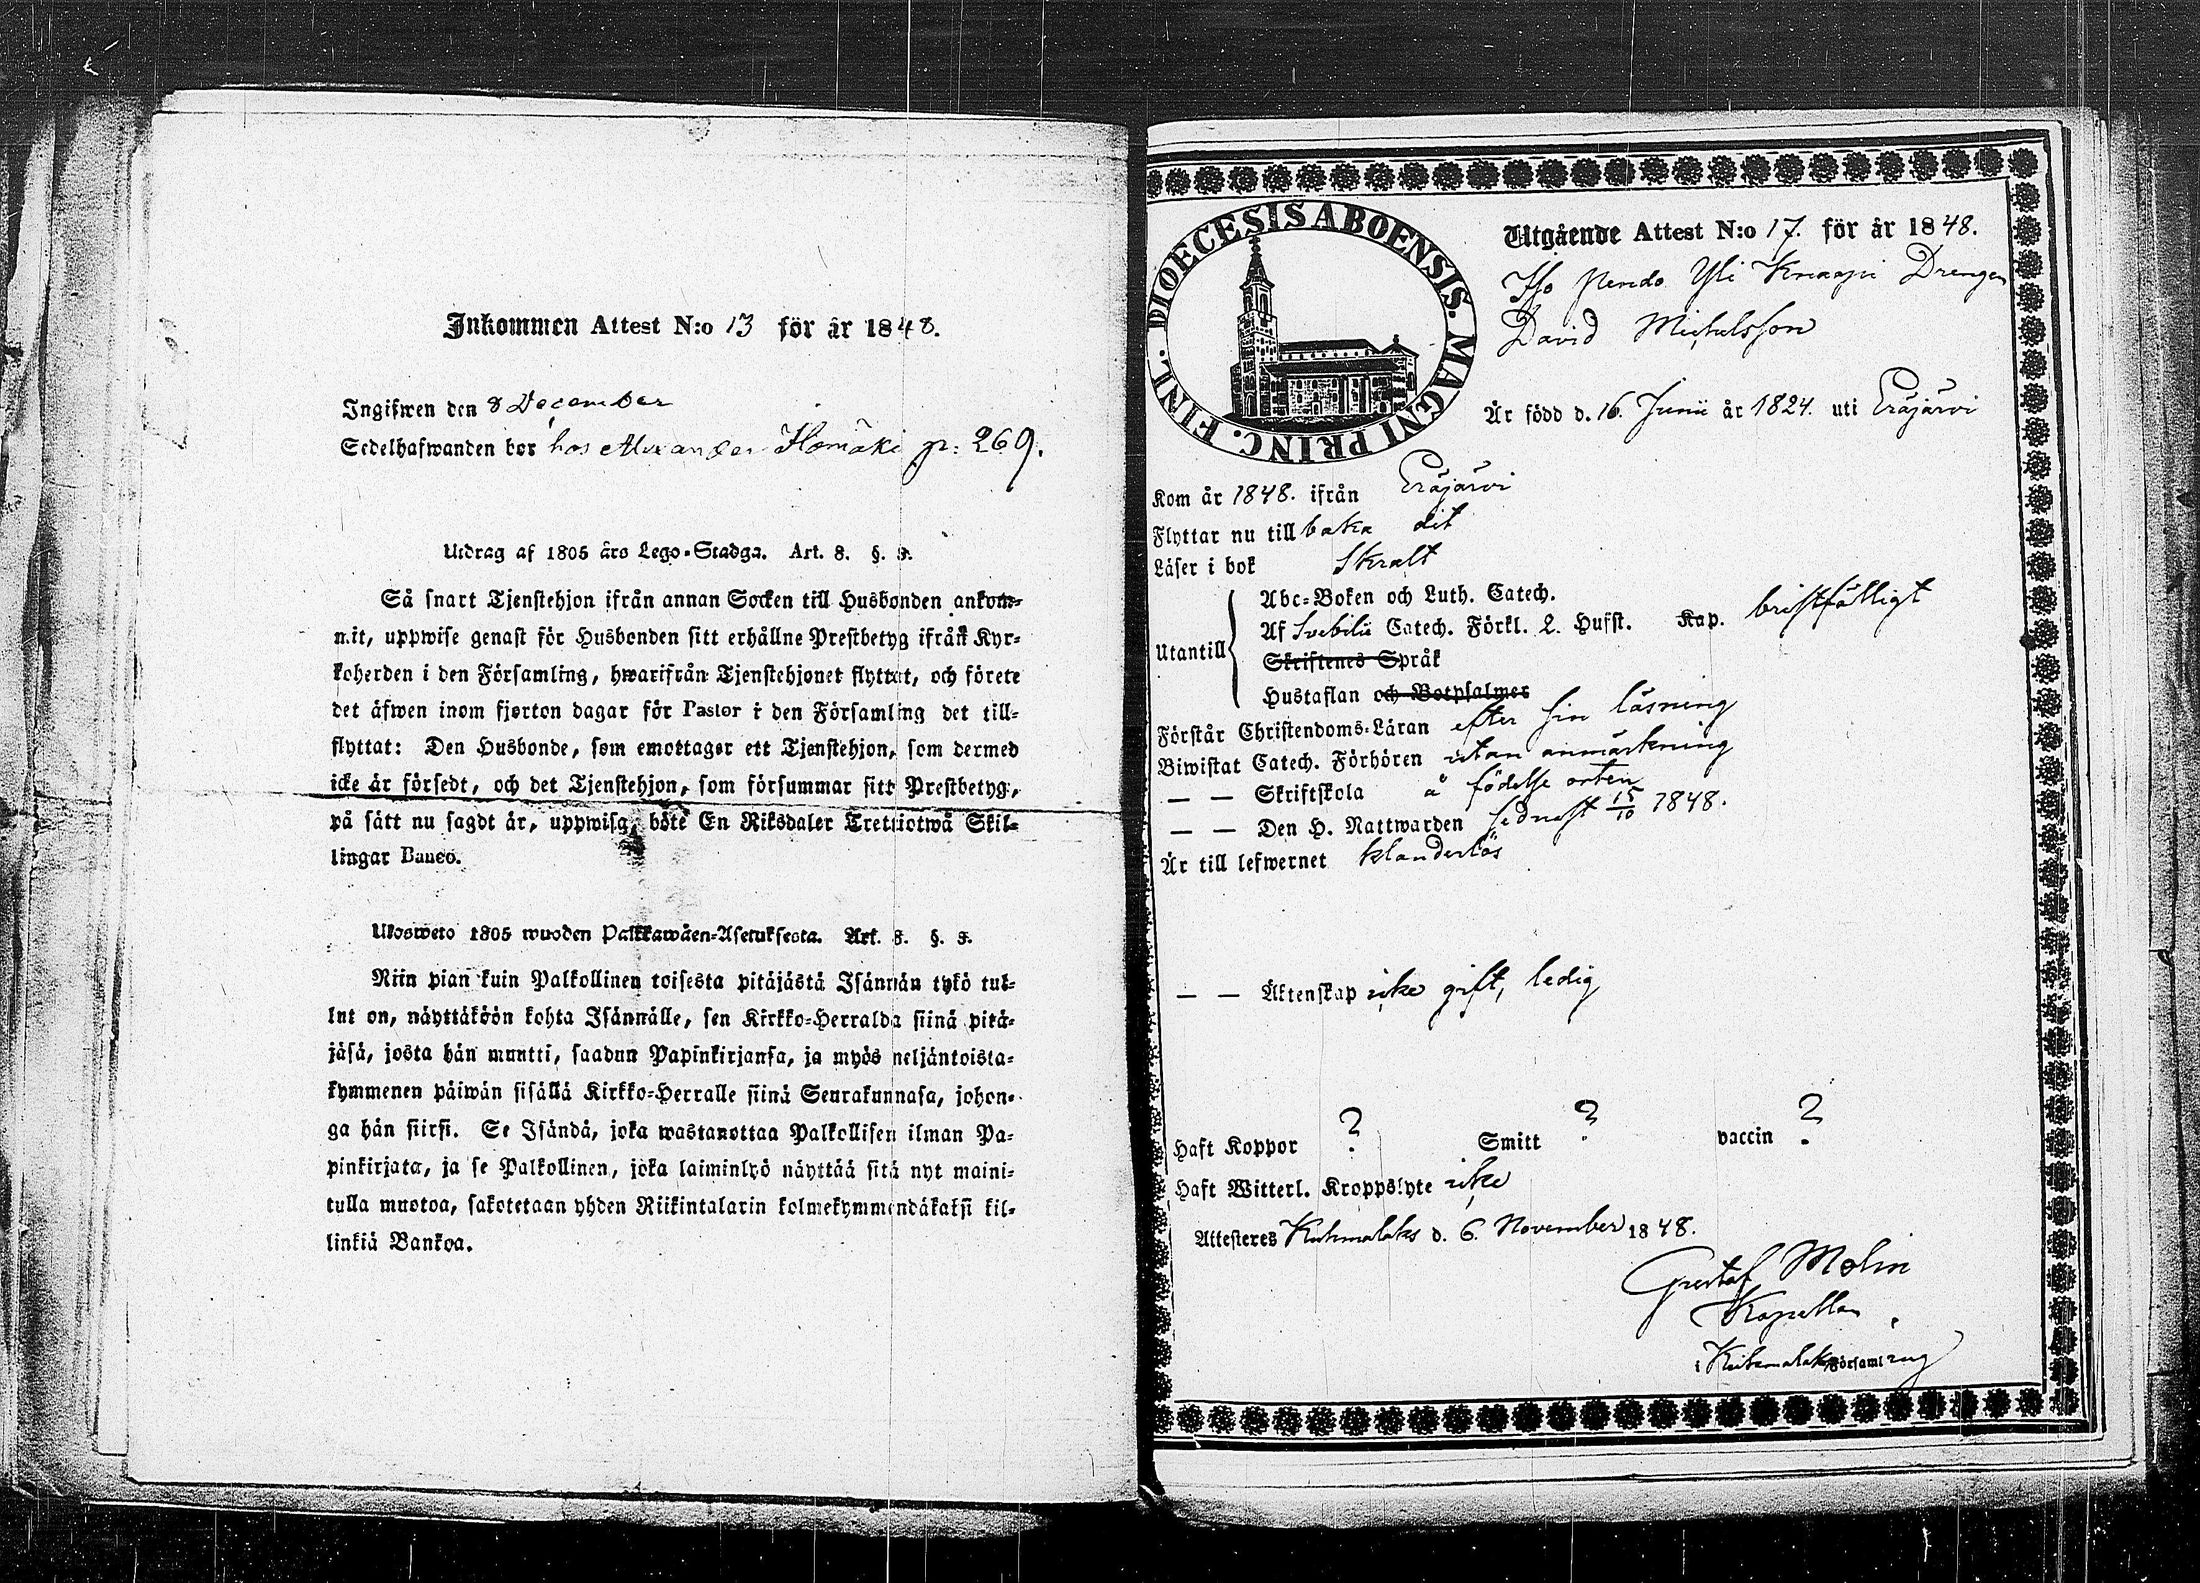 Inkommen Attest N:o 13 för år 1848.
Ingifwen den 8 December
Sedelhafwanden bor hos Alexander pr: 269.
Utdrag af 1805 års Lego-Stadga. Art. 8. §.
Så snart Tjenstehjon ifrån annan Socken till Husbonden ankom-
mit, uppwise genast för Husbonden sitt erhållne Prestbetyg ifrån Kyr-
koherden i den Församling, hwarifrån Tjenstehjonet flyttat, och förete
det äfwen inom fjorton dagar för Pastor i den Församling det till-
flyttat: Den Husbonde, som emottager ett Tjenstehjon, som dermed
icke är försedt, och det Tjenstehjon, som försummar sitt Prestbetyg,
på sätt nu sagdt är, uppwisa, böte En Riksdaler Trettiotwå Skil-
lingar Banco.
Ulosweto 1805 wuoden Palkkawäen-Asetuksesta. Art. 8. §.
Niin pian kuin Palkollinen toisesta pitäjästä Isännän tykö tul-
lut on, näyttäköön kohta Isännälle, sen Kirkko-Herralda siinä pitä-
jäsä, josta hän muutti, saadun Papinkirjansa, ja myös neljäntoista-
kymmenen päiwän sisällä Kirkko-Herralle siinä Seurakunnasa, johon-
ga hän siirsi. Se Isändä, joka wastanottaa Palkollisen ilman Pa-
pinkirjata, ja se Palkollinen, joka laiminlyö näyttää sitä nyt maini-
tulla muotoa, sakotetaan yhden Riikintalarin kolmekymmendäkaksi kil-
linkiä Bankoa.
DIOECESIS ABOENSIS. MAGNI PRINC. FINL.
Utgående Attest N:o 17. för år 1848.
Yli Knaapi Drengen
David Michelsson
Är född d. 16. Junii år 1824. uti Eräjärvi
Kom år 1848. ifrån Eräjärvi
Flyttar nu till baka dit
Läser i bok Skralt
Utantill
Abc-Boken och Luth. Catech.
Af Svebilii Catech. Förkl. 2. Hufst. Kap. bristfälligt
Skriftenes Språk
Hustaflan och Botpsalmer
Förstår Christendoms-Läran efter sin läsning
Biwistat Catech. Förhören utan anmärkning
— — Skriftskola å födelse orten
— — Den H. Nattwarden sednast 15/10 1848.
Är till lefwernet klanderlös
— — Äktenskap icke gift, ledig
Haft Koppor ? Smitt ? vaccin ?
Haft Witterl. Kroppslyte icke
Attesteres Kuhmalaks d. 6. November 1848.
Gustaf Molin
Kapellan
i Kuhmalaks Församling